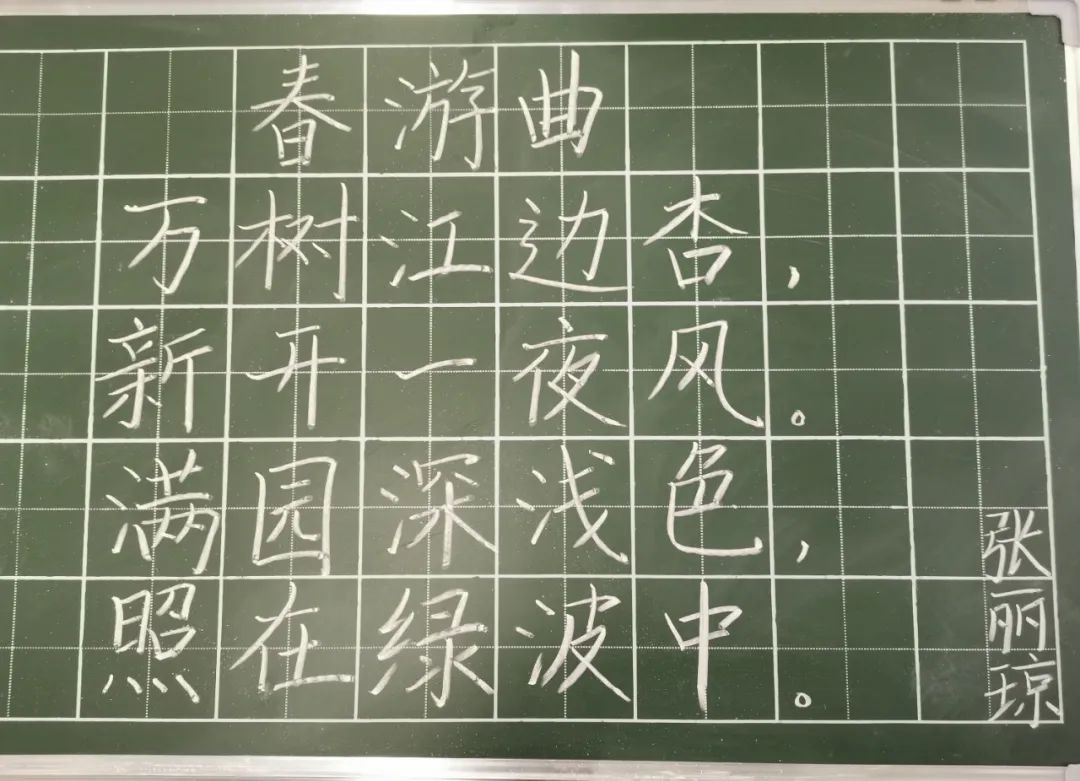 春游曲
万树江边杏，
新开一夜风。
满园深浅色，
照在绿波中。
张丽琼